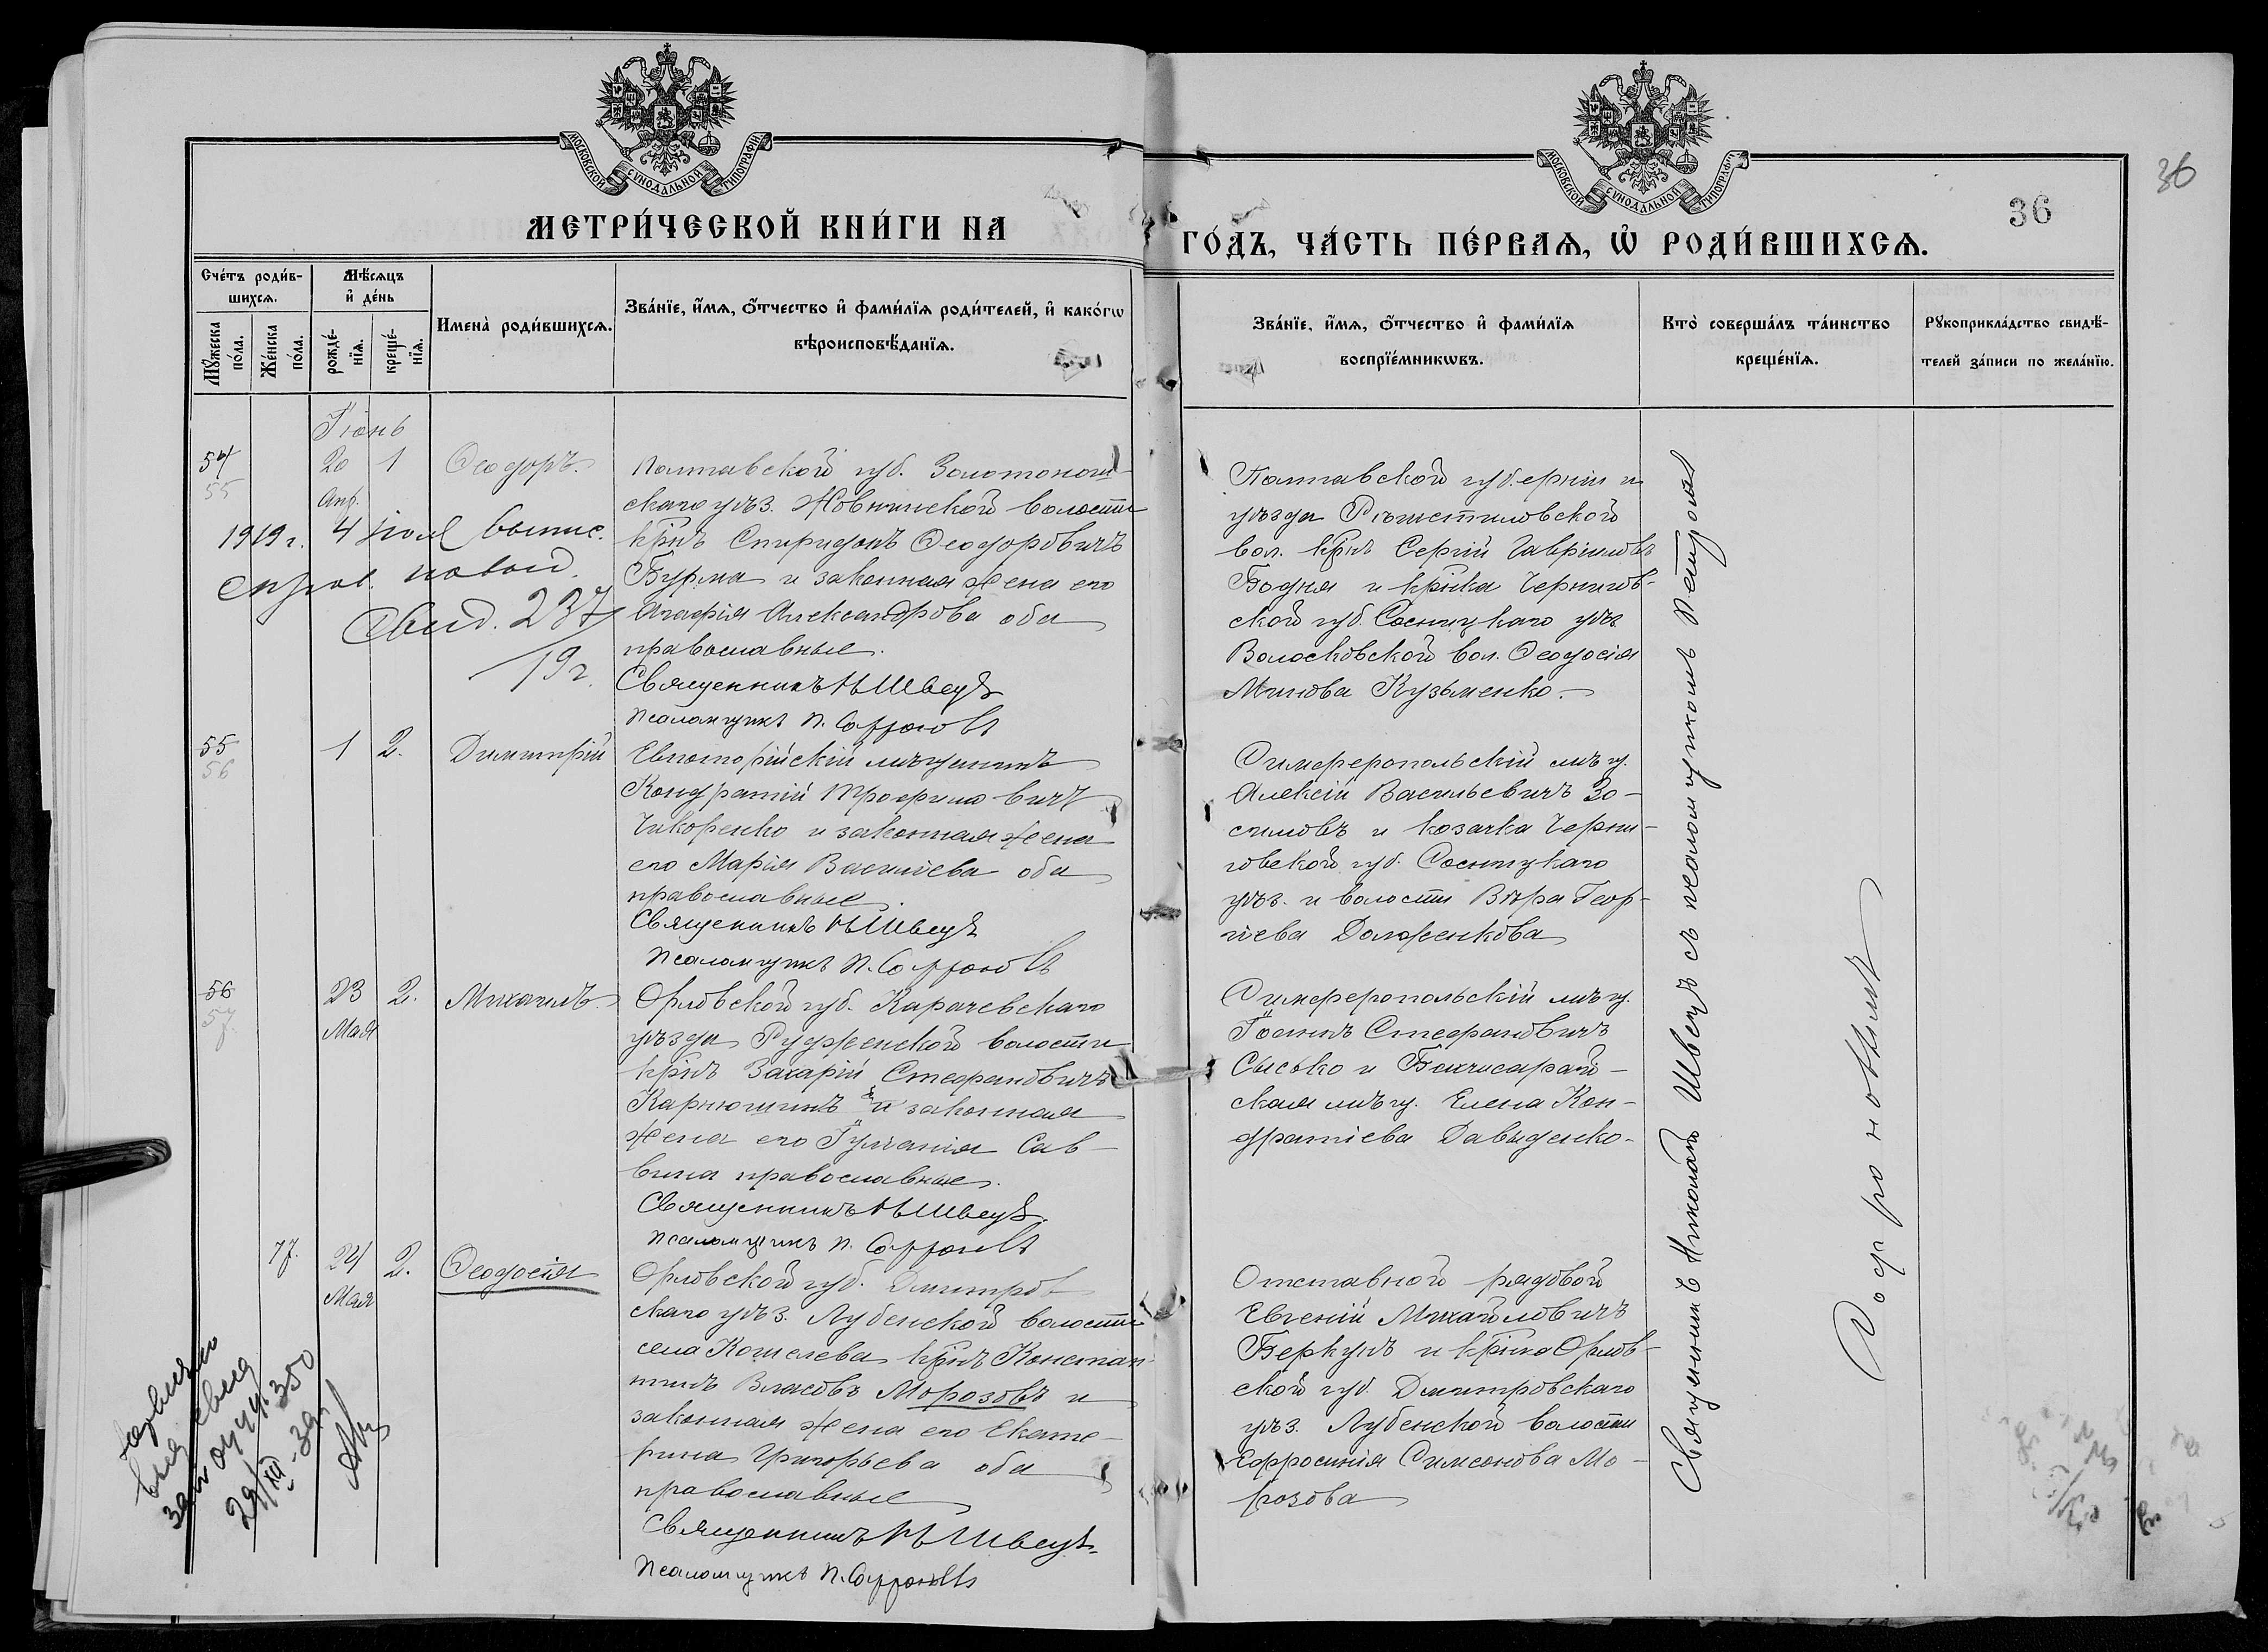 МОСКОВСКОЙ СѴНОДАЛЬНОЙ ТИПОГРАФІИ.
МЕТРИ́ЧЕСКОЙ КНИ́ГИ НА
Сче́тъ роди́в-
шихсѧ.
Мꙋ́жеска
по́ла.
Же́нска
по́ла.
Мѣ́сѧцъ
и҆ де́нь
рожде́-
нїѧ.
креще́-
нїѧ.
Имена̀ роди́вшихсѧ.
Зва́нїе, и҆́мѧ, ѻ҆́тчество и҆ фами́лїѧ роди́телей, и҆ како́гѡ
вѣроисповѣ́данїѧ.
Іюнь
54
55
20 1
Апр.
Ѳеодоръ.
Полтавской губ. Золотонош-
скаго уѣз. Жовнинской волости
крнъ Спиридонъ Ѳеодоровичъ
Бурма и законная жена его
Агафія Александрова оба
православные.
Священникъ Н. Швецъ
Псаломщикъ П. Софроновъ
1919 г. 4 выпис.
новой
Свид. 237
19 г.
55
56
1 2.
Димитрій
Евпаторійскій мѣщанинъ
Кондратій Трофимовичъ
Чикоренко и законная жена
его Марія Василіева оба
православные.
Священникъ Н. Швецъ
Псаломщикъ П. Софроновъ
56
57.
23 2.
Мая
Михаилъ.
Орловской губ. Карачевскаго
уѣзда Рудженской волости
крнъ Захарій Стефановичъ
Карнюшинъ и законная
жена его Іуліанія Сав-
вина православные.
Священникъ Н. Швецъ.
Псаломщикъ П. Софроновъ
77. 24 2.
Мая
Ѳеодосія
Орловской губ. Дмитров
скаго уѣз. Лубенской волости
села Кошелева крнъ Констан-
тинъ Власовъ Морозовъ и
законная жена его Екате-
рина Григорьева оба
православные
Священникъ Н. Швецъ.
Псаломщикъ П. Софроновъ
350
29/XII-39
МОСКОВСКОЙ СѴНОДАЛЬНОЙ ТИПОГРАФІИ.
36
36
ГО́ДЪ, ЧА́СТЬ ПЕ́РВАѦ, Ѽ РОДИ́ВШИХСѦ.
Зва́нїе, и҆́мѧ, ѻ҆́тчество и҆ фами́лїѧ
воспрїе́мникѡвъ.
Кто̀ соверша́лъ та́инство
креще́нїѧ.
Рꙋкоприкла́дство свидѣ́-
телей за́писи по жела́нїю.
Полтавской губерніи и
уѣзда Рѣшетиловской
вол. крнъ Сергій Гавріиловъ
Бодня и крнка Чернигов-
ской губ. Сосницкаго уѣз
Волосковской вол. Ѳеодосія
Минова Кузьменко.
Симферопольскій мѣщ.
Алексій Васильевичъ Зо-
симовъ и козачка Черни-
говской губ. Сосницкаго
уѣз. и волости Вѣра Геор-
гіева Долженкова
Симферопольскій мѣщ.
Іоаннъ Стефановичъ
Сысько и Бахчисарай-
ская мѣщ. Елена Кон-
дратіева Давыденко.
Отставной рядовой
Евгеній Михайловичъ
Беркутъ и крнка Орлов-
ской губ. Дмитровскаго
уѣз. Лубенской волости
Ефросинія Симеонова Мо-
розова
Священникъ Николай Швецъ съ псаломщикомъ Петромъ
Софроновымъ